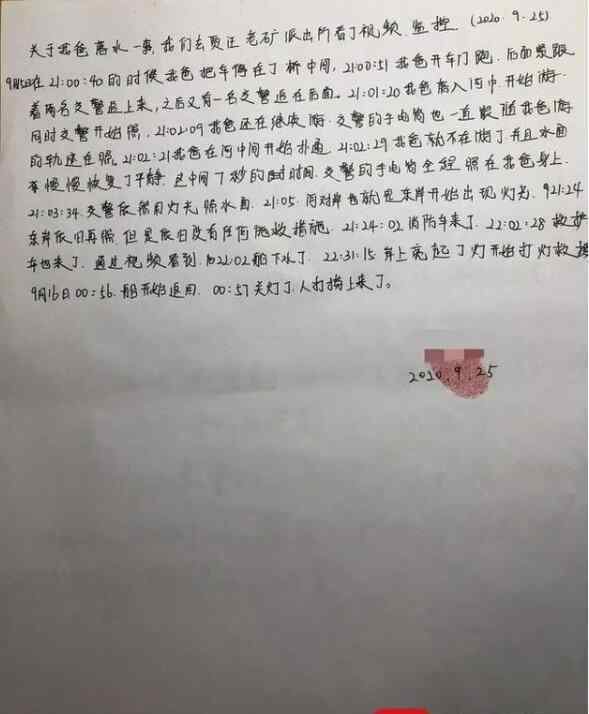 关于我爸落水一事,我们去贾汪老矿派出所看了视频监控 (2020.9.25)
9月15日在21:00:40的时候我爸把车停在了桥中间,21:00:51我爸开车门跑.后面紧跟
着两名交警追上来,之后又有一名交警追在后面。21:01:20我爸落入河中.开始游.
同时交警开始照,21:02:09我爸还在继续游.交警的手电筒也一直跟随我爸游
的轨迹在照。21:02:21我爸在河中间开始扑通.21:02:29我爸就不在游了并且水面
慢慢恢复了平静.这中间7秒的时间.交警的手电筒全程照在我爸身上.
21:03:34.交警依然用灯光照水面.21:05.河对岸也就是东岸开始出现灯光.921:24
东岸依旧再照.但是依旧没有任何施救措施.21:24:02消防车来了.22:02:28救护
车也来了.通过视频看到.后22:02船下水了.22:31:15岸上亮起了灯开始打灯救援
9月16日00:56.船开始返回.00:57关灯了.人打捞上来了。
2020.9.25